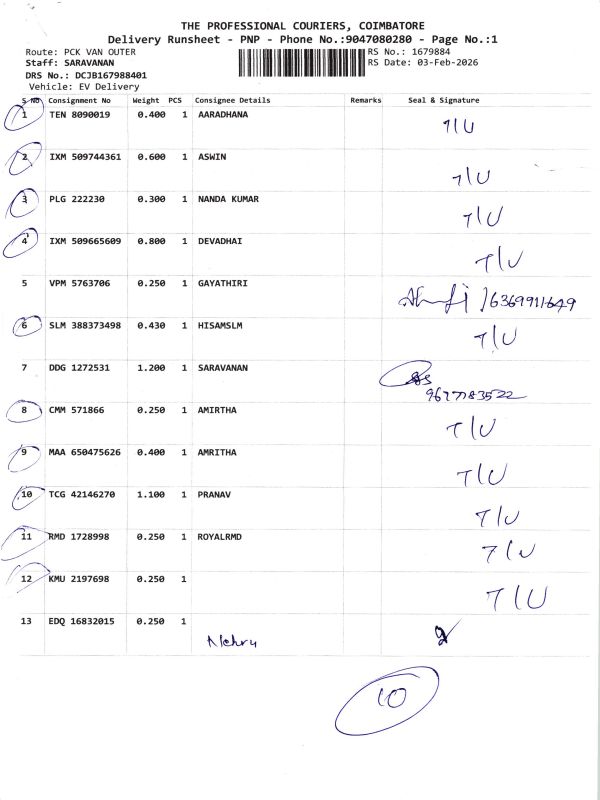 THE PROFESSIONAL COURIERS, COIMBATORE
Delivery Runsheet - PNP - Phone No.:9047080280 - Page No.:1
Route: PCK VAN OUTER
RS No.: 1679884
Staff: SARAVANAN
RS Date: 03-Feb-2026
DRS No.: DCJB167988401
Vehicle: EV Delivery
S No Consignment No Weight PCS Consignee Details Remarks Seal & Signature
1 TEN 8090019 0.400 1 AARADHANA T/U
2 IXM 509744361 0.600 1 ASWIN T/U
3 PLG 222230 0.300 1 NANDA KUMAR T/U
4 IXM 509665609 0.800 1 DEVADHAI T/U
5 VPM 5763706 0.250 1 GAYATHIRI /6369911649
6 SLM 388373498 0.430 1 HISAMSLM T/U
7 DDG 1272531 1.200 1 SARAVANAN
9677183522
8 CMM 571866 0.250 1 AMIRTHA T/U
9 MAA 650475626 0.400 1 AMRITHA T/U
10 TCG 42146270 1.100 1 PRANAV T/U
11 RMD 1728998 0.250 1 ROYALRMD T/U
12 KMU 2197698 0.250 1 T/U
13 EDQ 16832015 0.250 1
Nehru
10